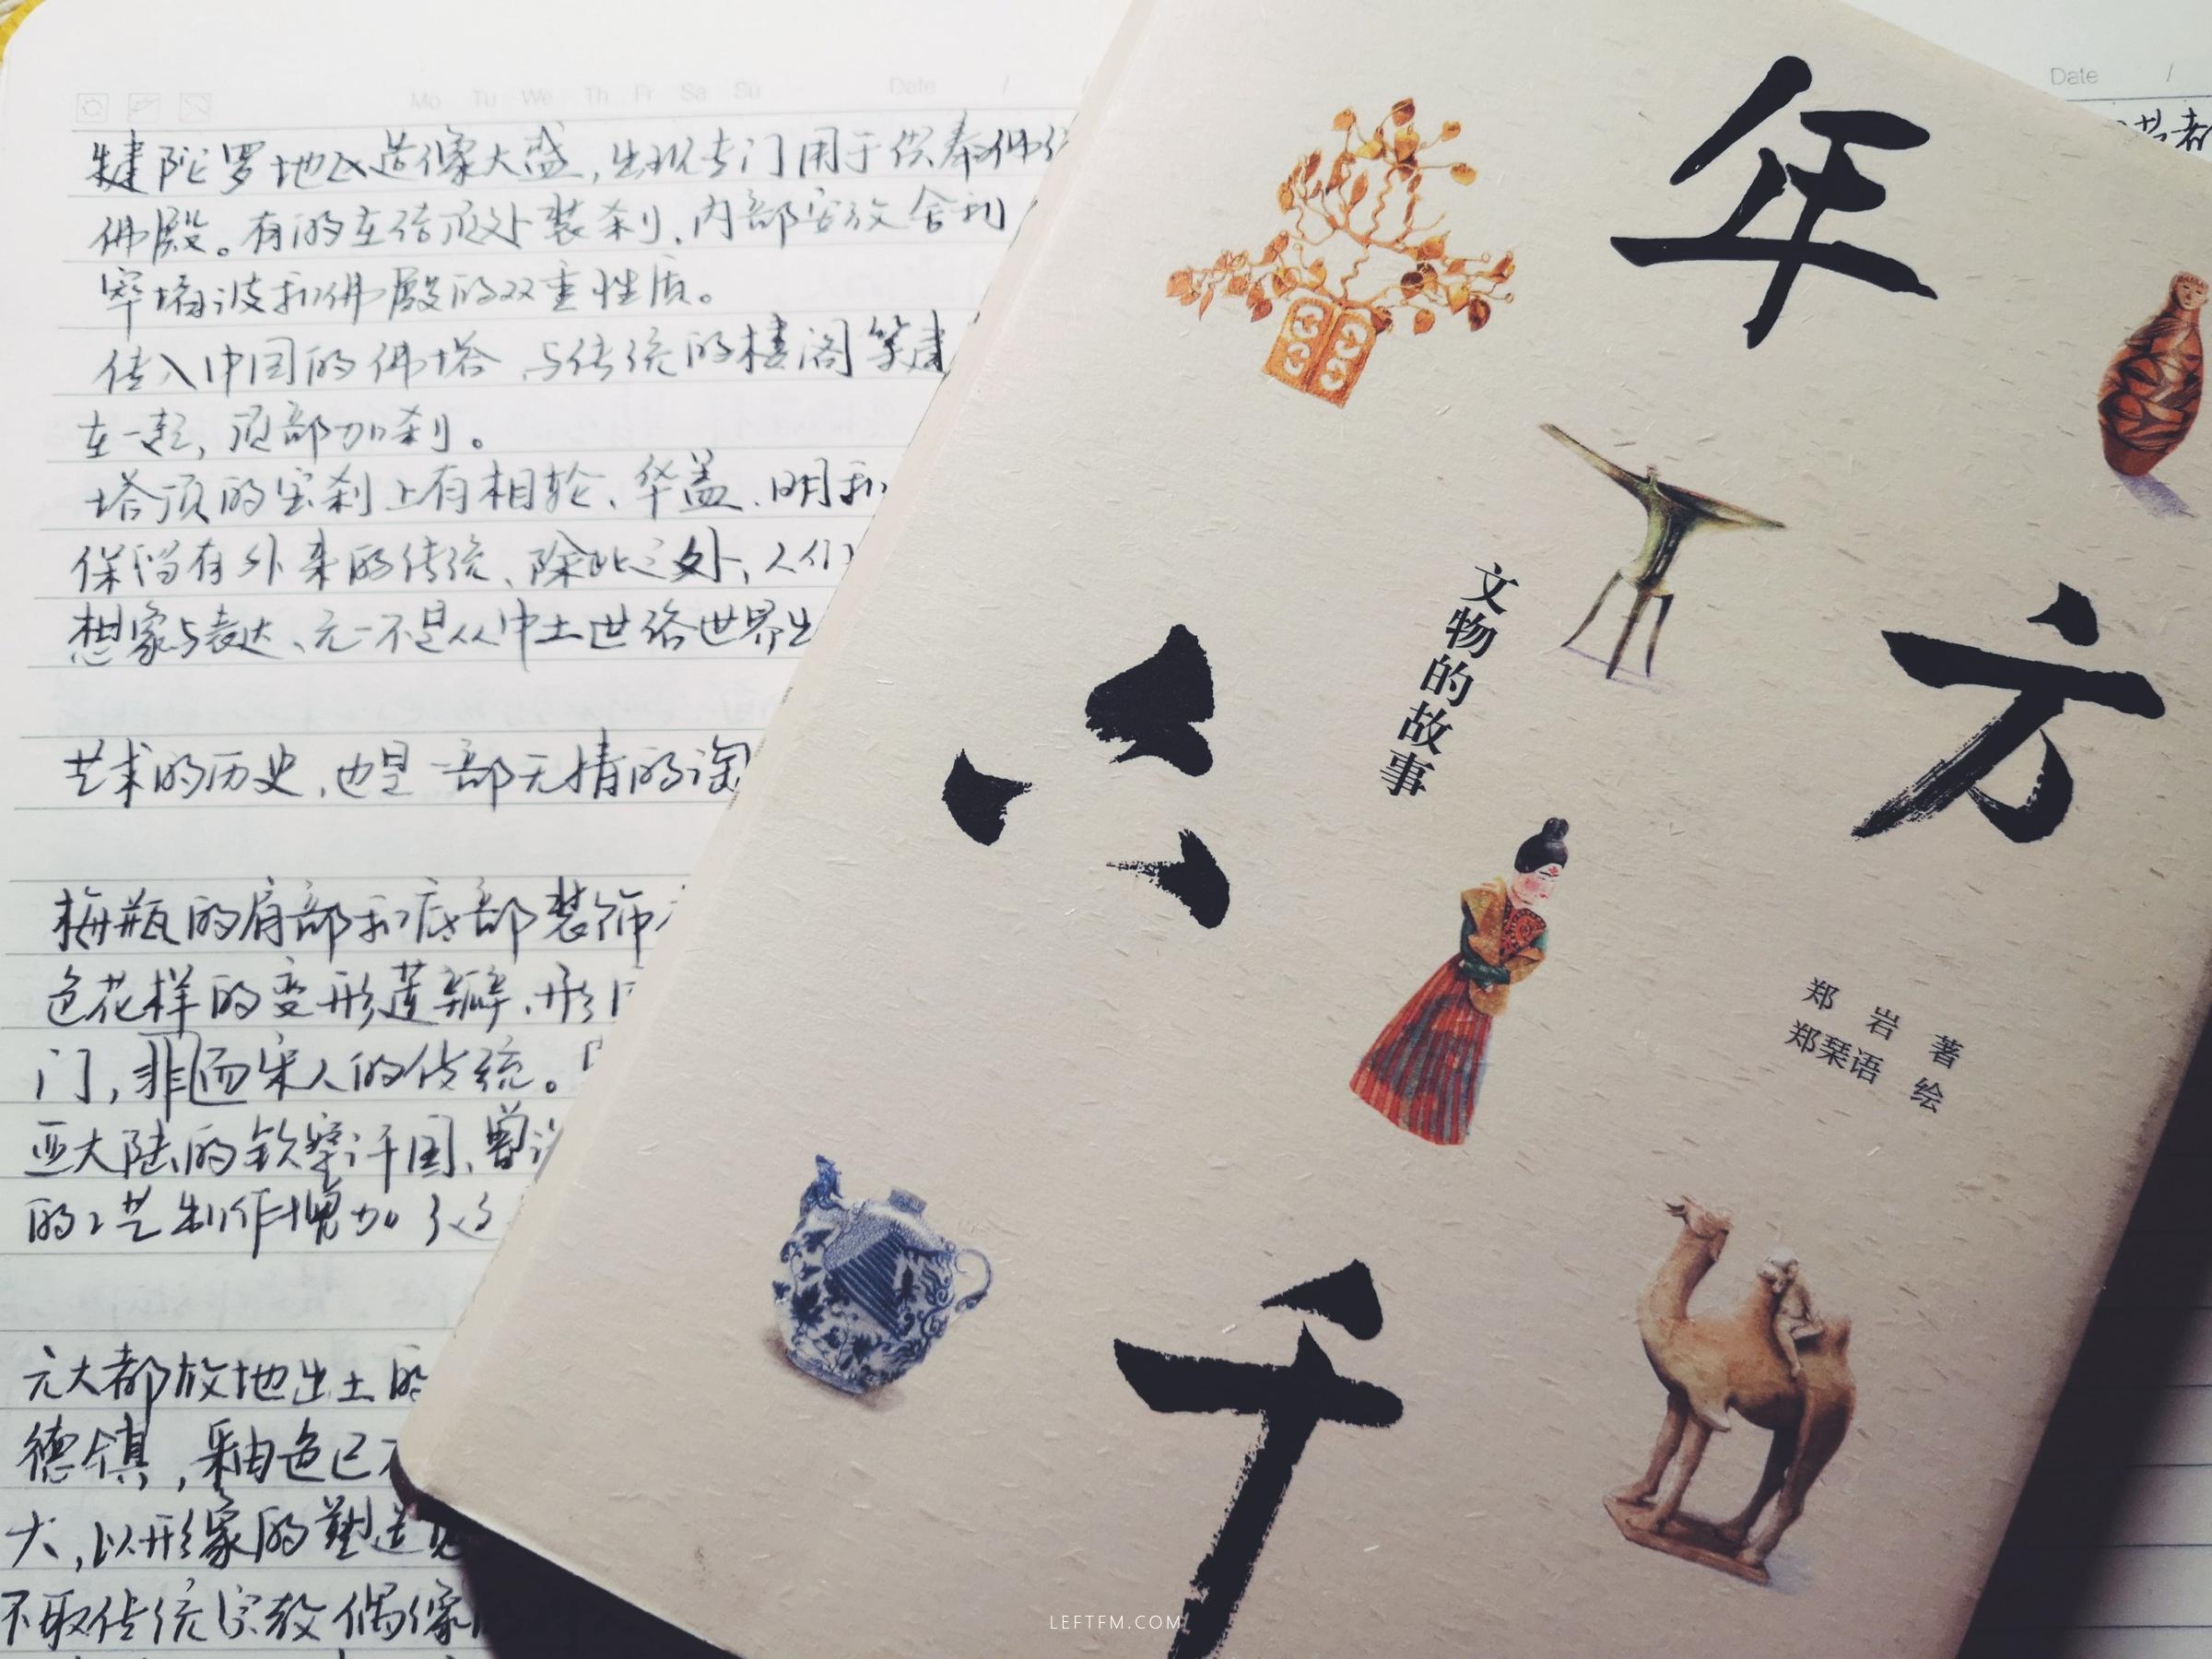 Mo Tu We Th Fr Sa Su Date / /
犍陀罗地区造像大盛,出现专门用于供奉佛
佛殿。有的在塔顶处装刹,内部安放舍利
窣堵波和佛殿的双重性质。
传入中国的佛塔,与传统的楼阁
在一起,顶部加刹。
塔顶的宝刹上有相轮、华盖、明
保留有外来的传统、除此之外,人们
想象与表达、无一不是从中土世俗世界
艺术的历史,也是一部无情的淘
梅瓶的肩部和底部装饰
色花样的变形莲瓣,形
门,非而宋人的传统。
亚大陆的钦察汗国,曾
的工艺制作增加了
元大都故地出土的
德镇,釉色已
大,以形象的塑造
不取传统宗教偶像
Date /
年
方
六
千
文物的故事
郑 岩 著
郑琹语 绘
LEFTFM.COM